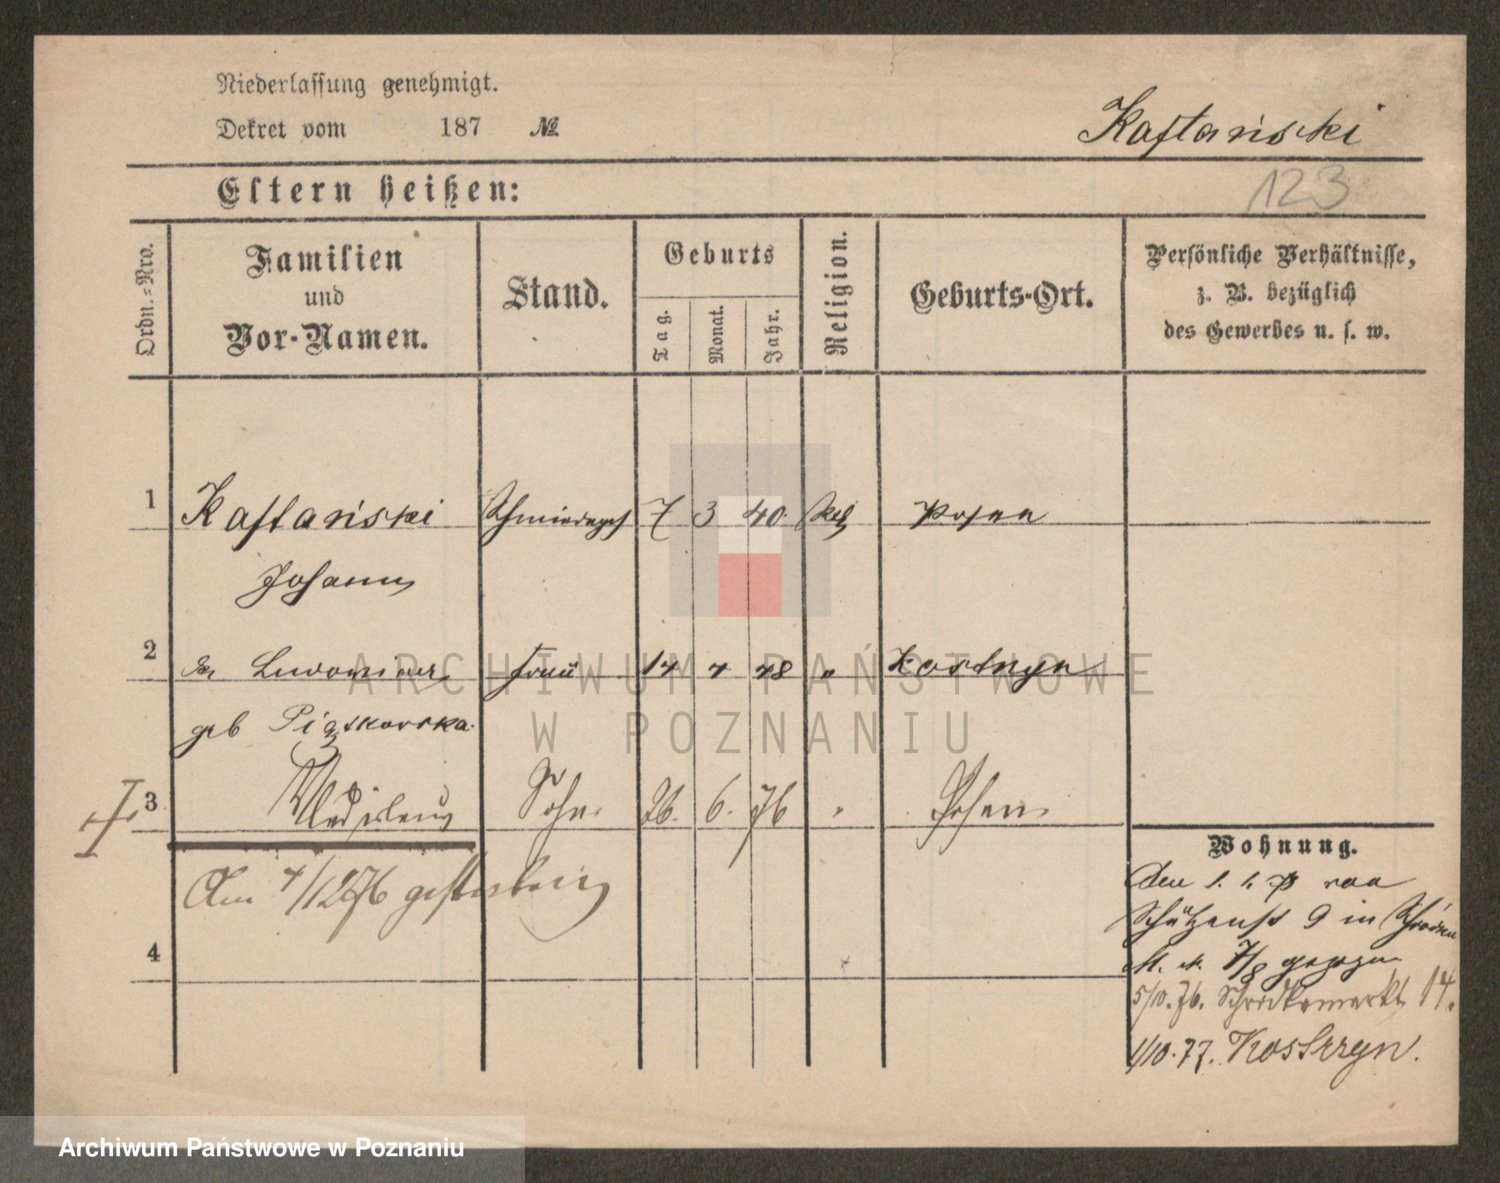 Niederlassung genehmigt.
Dekret vom 187 №
Kaftański
123
Eltern heißen:
Ordn.-Nro.
Familien
und
Vor-Namen.
Stand.
Geburts
Tag.
Monat.
Jahr.
Religion.
Geburts-Ort.
Persönliche Verhältnisse,
z. B. bezüglich
des Gewerbes u. s. w.
1 Kaftański Schmiedeges 7 3 40. Kath Posen
Johann
2 Frau 14 4 48 " Kostrzyn
geb Piąskowska
3 Sohn. 26. 6. 76 " Posen
Am 4/12 76 gestorben
4
Wohnung.
Den 1. 1. von
Schützenst 9 in Schrodka
M. N. 7/8 gezogen
5/10. 76. Schrodkamarkt 14.
1/10. 77. Kostrzyn.
ARCHIWUM PAŃSTWOWE
W POZNANIU
Archiwum Państwowe w Poznaniu